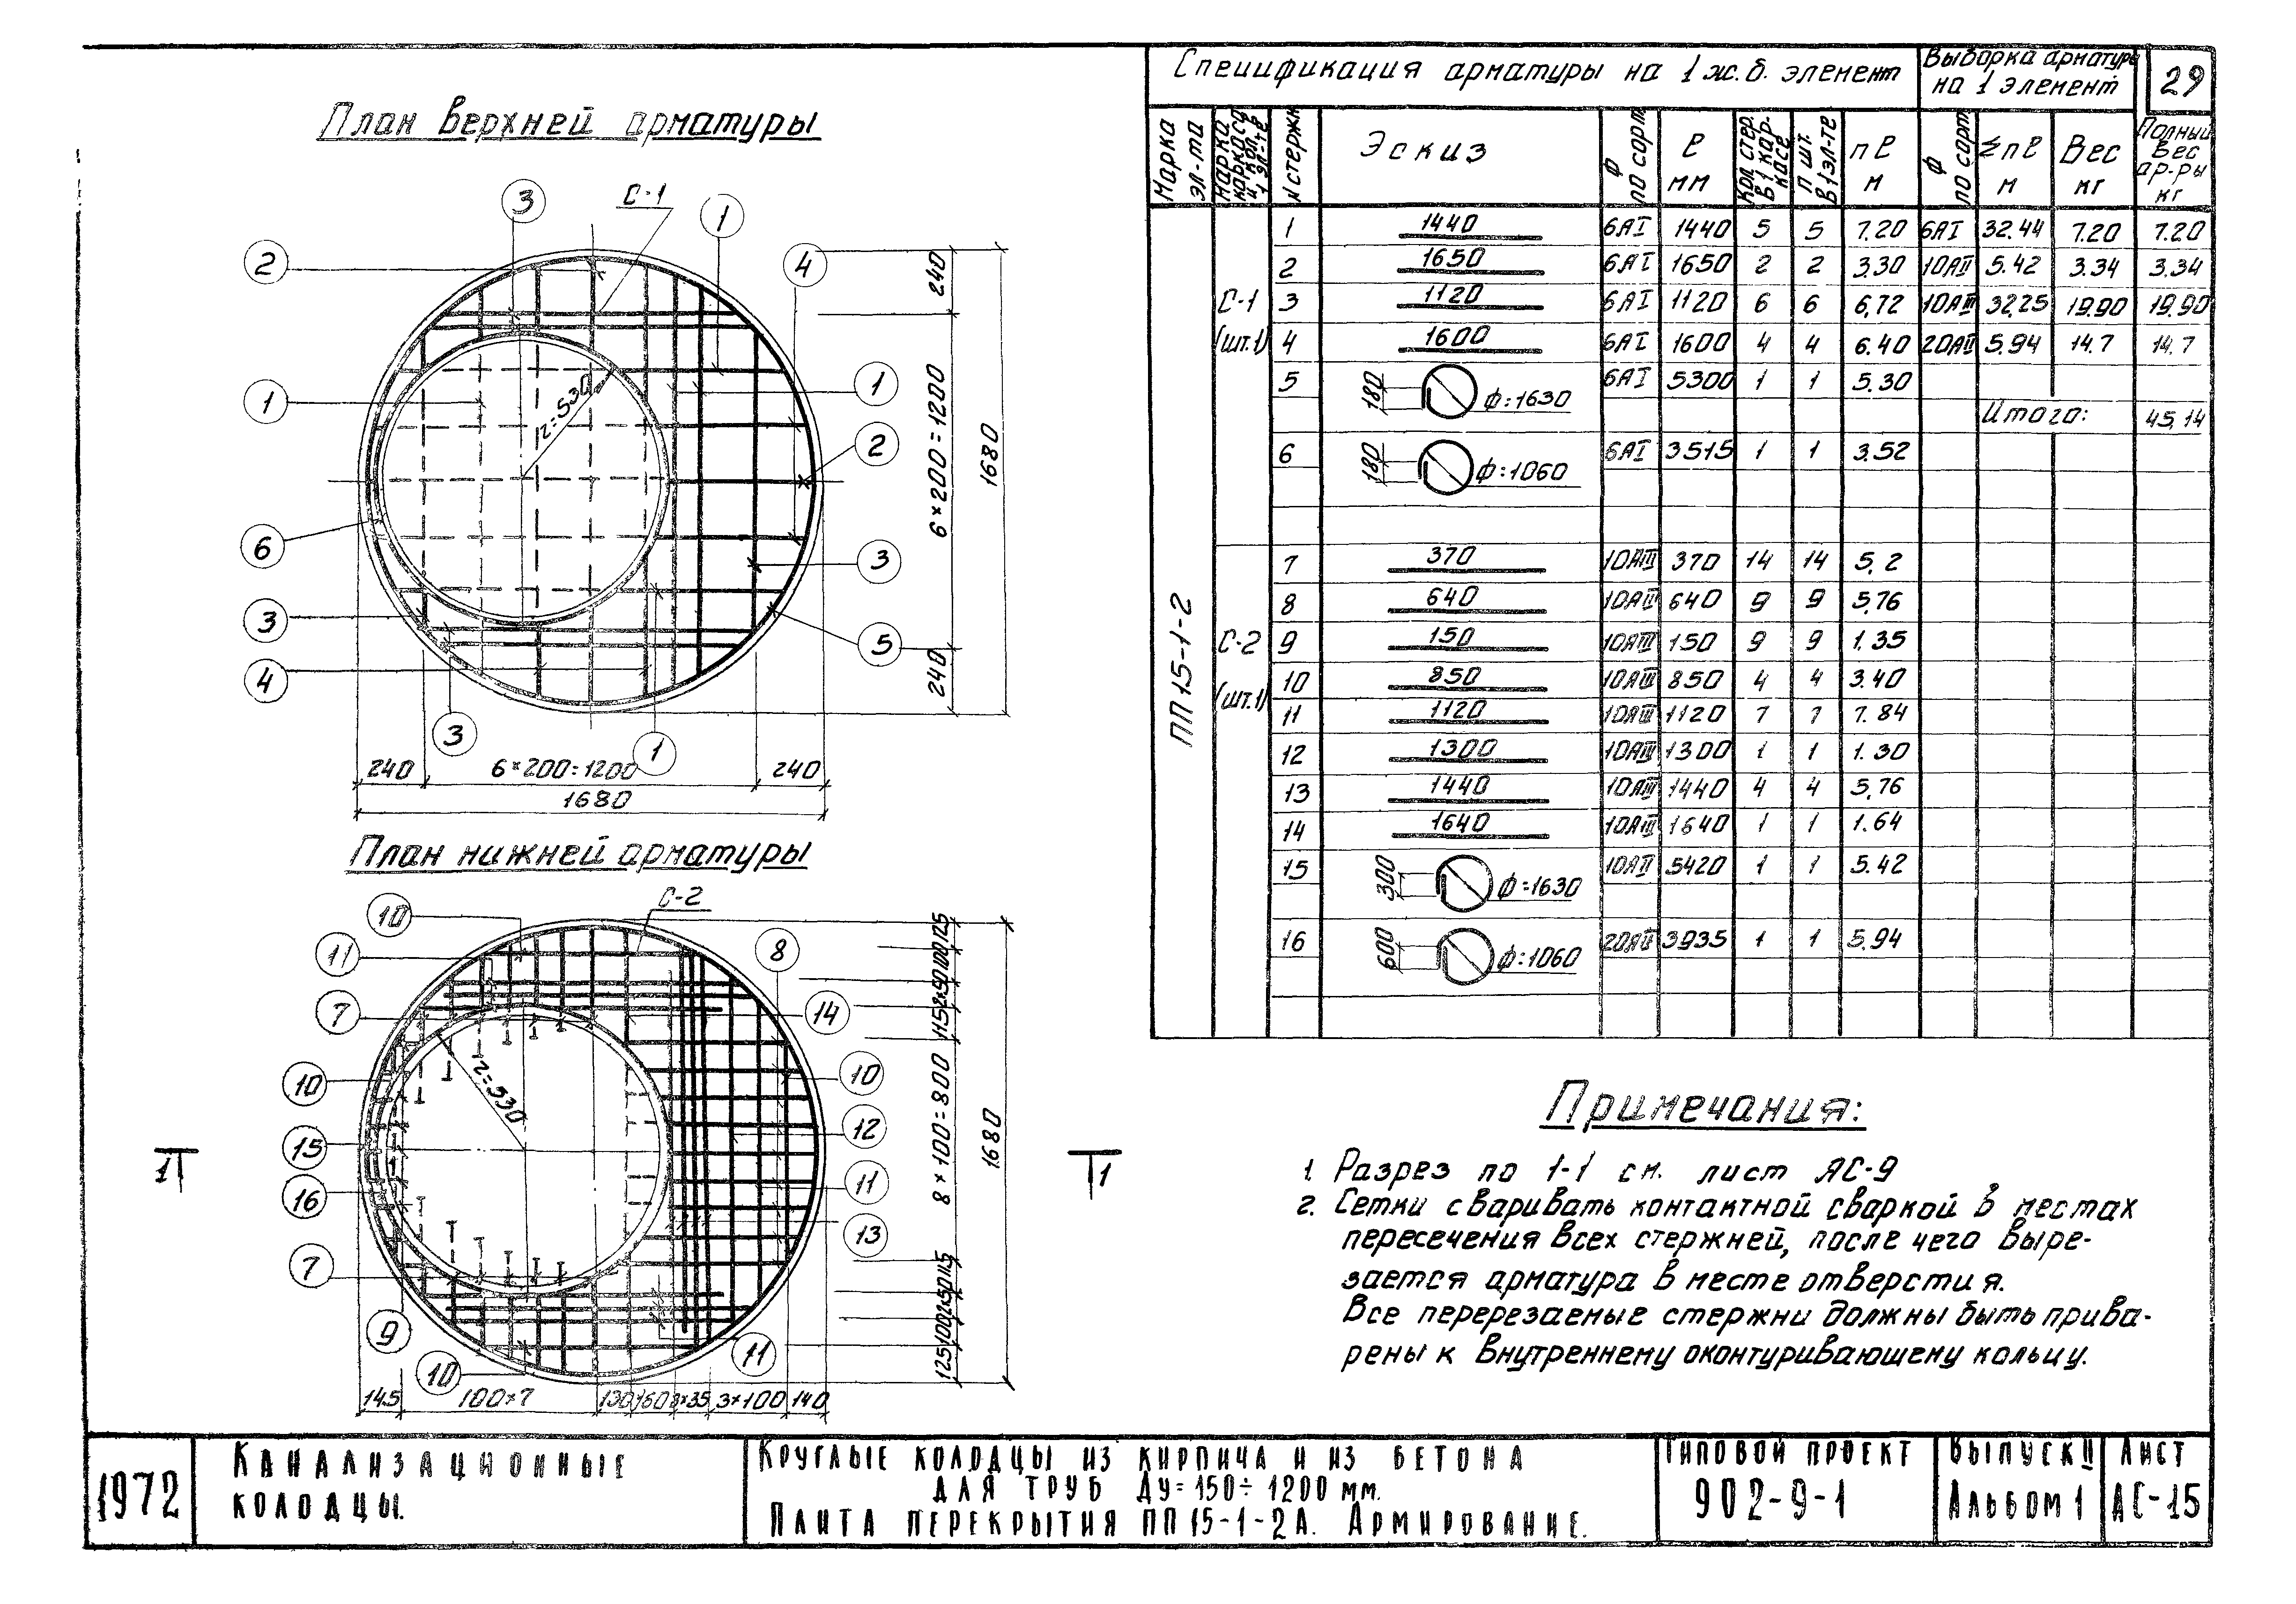 29
План верхней арматуры
С-1
3
1
2
4
1
1
2
6
3
3
5
4
3
1
r=530
240
6×200=1200
240
1680
240
6×200=1200
240
1680
План нижней арматуры
С-2
10
11
8
7
14
10
10
12
15
11
16
13
7
9
10
11
1
1
r=530
8×100=800
1680
145
100×7
130
160
3×100
140
Спецификация арматуры на 1 ж.б. элемент
Выборка арматуры на 1 элемент
Марка эл-та
Марка каркаса и кол. в 1 эл-те
N стержн
Эскиз
Ф по сорт
ℓ мм
Кол. стер. в 1 каркасе
П шт. в 1 эл-те
nℓ м
Ф по сорт
Σnℓ м
Вес кг
Полный вес ар-ры кг
ПП15-1-2
С-1 (шт.1)
1 1440 6АI 1440 5 5 7.20 6АI 32.44 7.20 7.20
2 1650 6АI 1650 2 2 3.30 10АII 5.42 3.34 3.34
3 1120 6АI 1120 6 6 6,72 10АIII 32,25 19.90 19.90
4 1600 6АI 1600 4 4 6.40 20АII 5.94 14.7 14.7
5 180 ф=1630 6АI 5300 1 1 5.30
Итого: 45,14
6 180 ф=1060 6АI 3515 1 1 3.52
С-2 (шт.1)
7 370 10АIII 370 14 14 5,2
8 640 10АIII 640 9 9 5,76
9 150 10АIII 150 9 9 1.35
10 850 10АIII 850 4 4 3.40
11 1120 10АIII 1120 7 7 7.84
12 1300 10АIII 1300 1 1 1.30
13 1440 10АIII 1440 4 4 5,76
14 1640 10АIII 1640 1 1 1.64
15 300 ф=1630 10АII 5420 1 1 5.42
16 600 ф=1060 20АII 3935 1 1 5.94
Примечания:
1. Разрез по 1-1 см. лист АС-9
2. Сетки сваривать контактной сваркой в местах
пересечения всех стержней, после чего выре-
зается арматура в месте отверстия.
Все перерезаемые стержни должны быть прива-
рены к внутреннему оконтуривающему кольцу.
1972
Канализационные
колодцы.
Круглые колодцы из кирпича и из бетона
для труб Ду=150÷1200 мм.
Плита перекрытия ПП15-1-2А. Армирование.
Типовой проект
902-9-1
Выпуск II
Альбом 1
Лист
АС-15